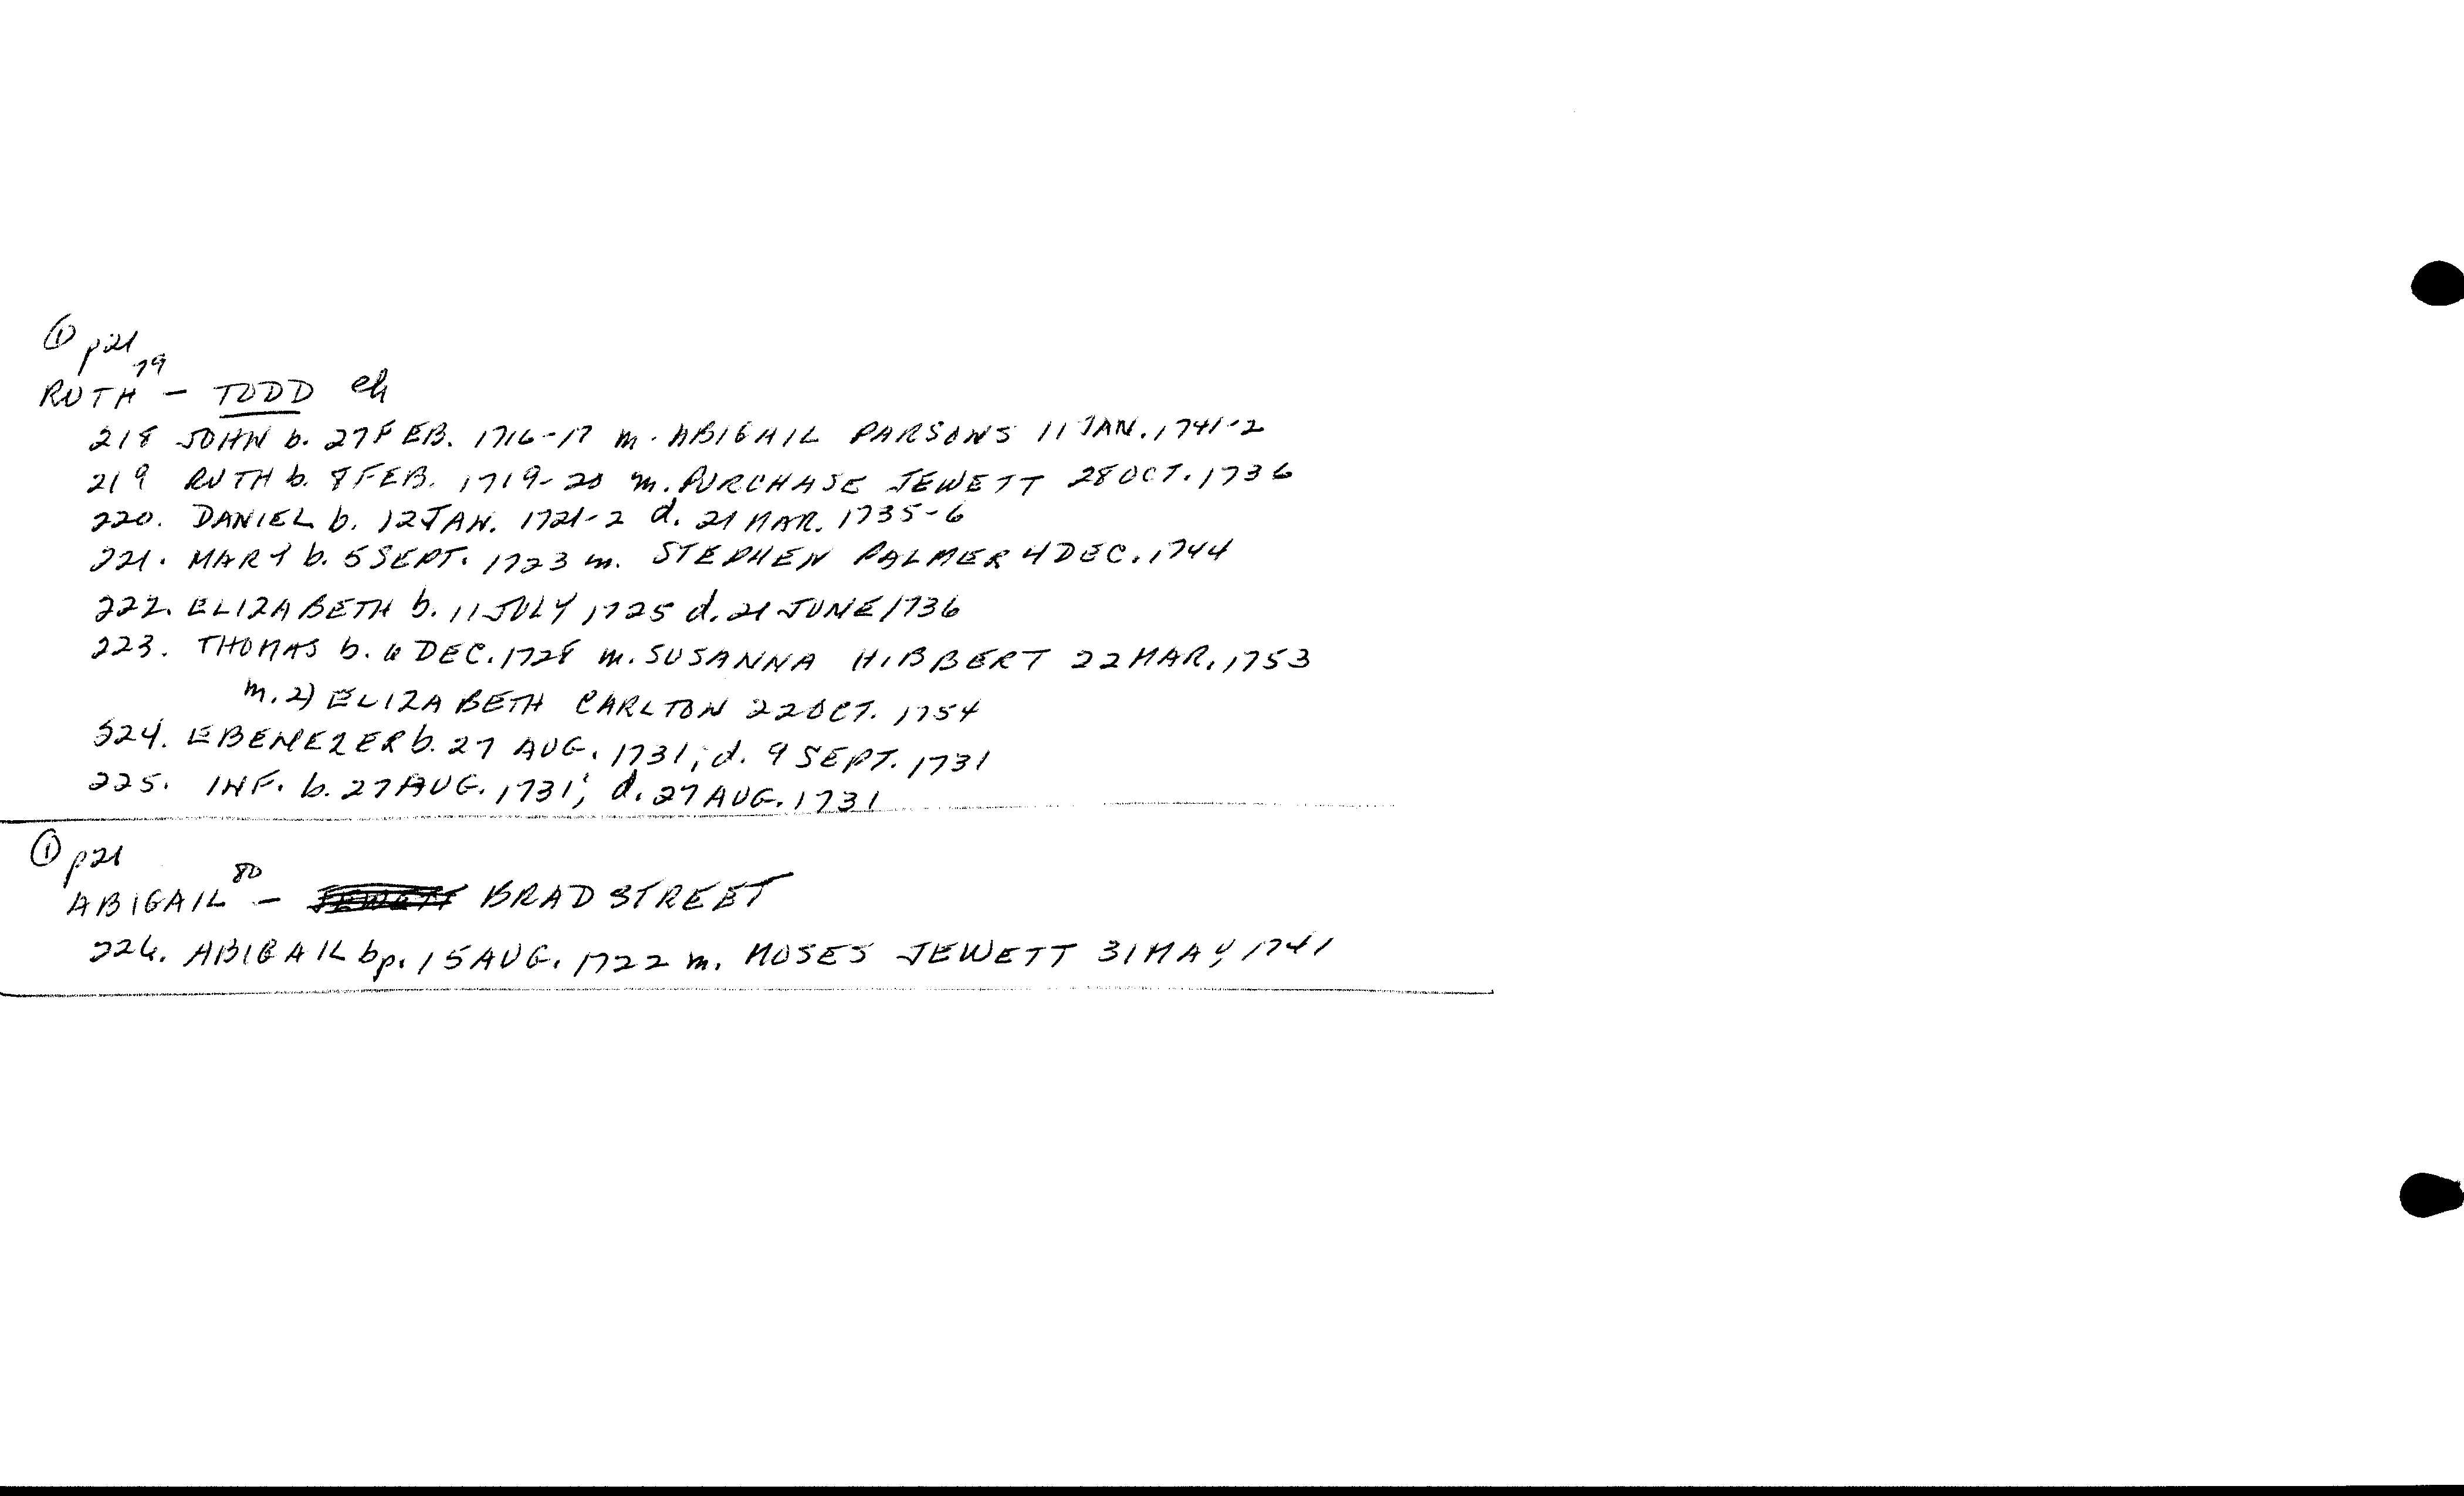 ① p21
RUTH⁷⁹ - TODD ch
218 JOHN b. 27 FEB. 1716-17 m. ABIGAIL PARSONS 11 JAN. 1741-2
219 RUTH b. 8 FEB. 1719-20 m. PURCHASE JEWETT 28 OCT. 1736
220. DANIEL b. 12 JAN. 1721-2 d. 21 MAR. 1735-6
221. MARY b. 5 SEPT. 1723 m. STEPHEN PALMER 4 DEC. 1744
222. ELIZABETH b. 11 JULY 1725 d. 21 JUNE 1736
223. THOMAS b. 6 DEC. 1728 m. SUSANNA HIBBERT 22 MAR. 1753
m. 2) ELIZABETH CARLTON 22 OCT. 1754
224. EBENEZER b. 27 AUG. 1731; d. 9 SEPT. 1731
225. INF. b. 27 AUG. 1731; d. 27 AUG. 1731
① p21
ABIGAIL⁸⁰ - BRADSTREET
226. ABIGAIL bp. 15 AUG. 1722 m. MOSES JEWETT 31 MAY, 1741